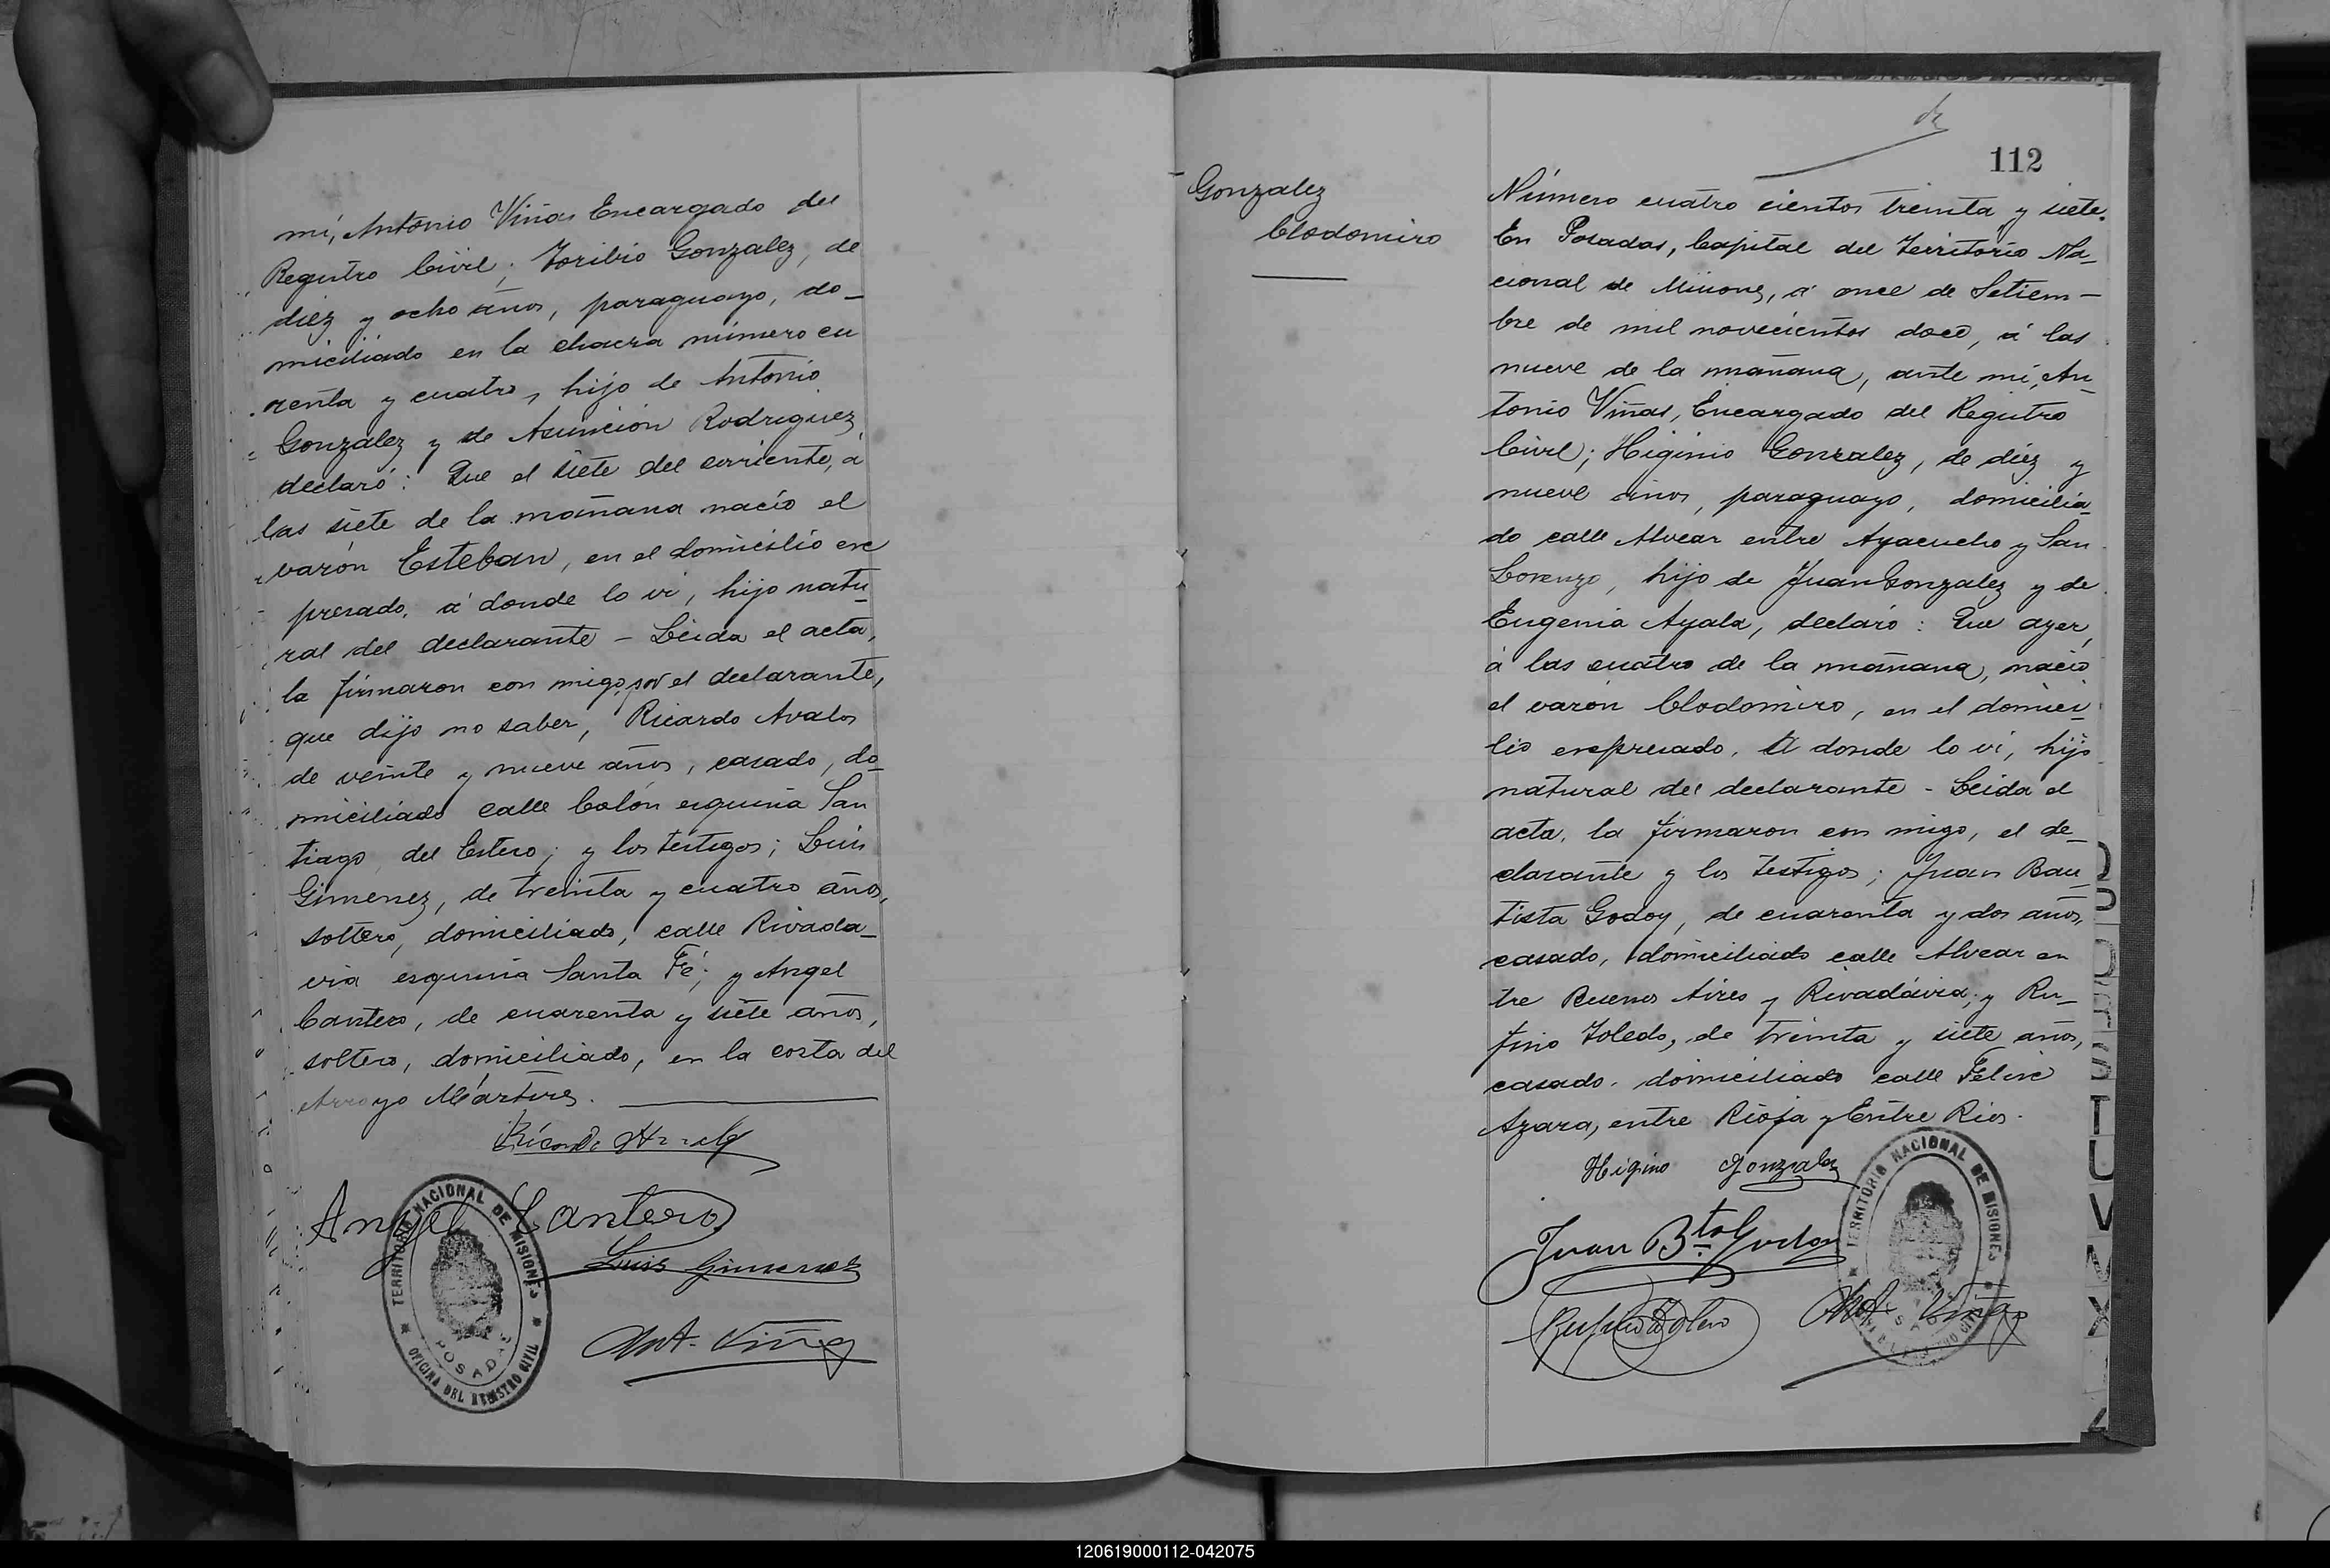 mi, Antonio Viñas Encargado del
Registro Civil; Toribio Gonzalez, de
diez y ocho años, paraguayo, do_
miciliado en la chacra número cu
renta y cuatro, hijo de Antonio
Gonzalez y de Asunción Rodriguez,
declaró: Que el siete del corriente, á
las siete de la mañana nació el
varón Esteban, en el domicilio ex
presado, á donde lo vi, hijo natu_
ral del declarante - Leida el acta,
la firmaron con migo, por el declarante,
que dijo no saber, Ricardo Avalos
de veinte y nueve años, casado, do_
miciliado calle Colón esquina San
tiago del Estero; y los testigos; Luis
Gimenez, de treinta y cuatro años,
soltero, domiciliado, calle Rivada_
via esquina Santa Fé; y Angel
Cantero, de cuarenta y siete años,
soltero, domiciliado, en la costa del
Arroyo Mártires.
Ricardo
Angel Cantero
Luis Gimenez
Ant. Viñas
TERRITORIO NACIONAL DE MISIONES
POSADAS
OFICINA DEL REGISTRO CIVIL
112
Gonzalez
Clodomiro
Número cuatro cientos treinta y siete.
En Posadas, Capital del Territorio Na_
cional de Misiones, á once de Setiem-
bre de mil novecientos doce, á las
nueve de la mañana, ante mi, An
tonio Viñas, Encargado del Registro
Civil; Higinio Gonzalez, de diez y
nueve años, paraguayo, domicilia_
do calle Alvear entre Ayacucho y San
Lorenzo, hijo de Juan Gonzalez y de
Eugenia Ayala, declaró: Que ayer,
á las cuatro de la mañana, nació
el varón Clodomiro, en el domici_
lio expresado, á donde lo vi, hijo
natural del declarante - Leida el
acta, la firmaron con migo, el de_
clarante y los testigos; Juan Bau_
tista Godoy, de cuarenta y dos años,
casado, domiciliado calle Alvear en
tre Buenos Aires y Rivadávia; y Ru_
fino Toledo, de treinta y siete años,
casado, domiciliado calle Felix
Azara, entre Rioja y Entre Rios.
Higino Gonzalez
Juan Bta Godoy
Rufino Toledo
Ant. Viñas
TERRITORIO NACIONAL DE MISIONES
S
T
U
V
X
120619000112-042075